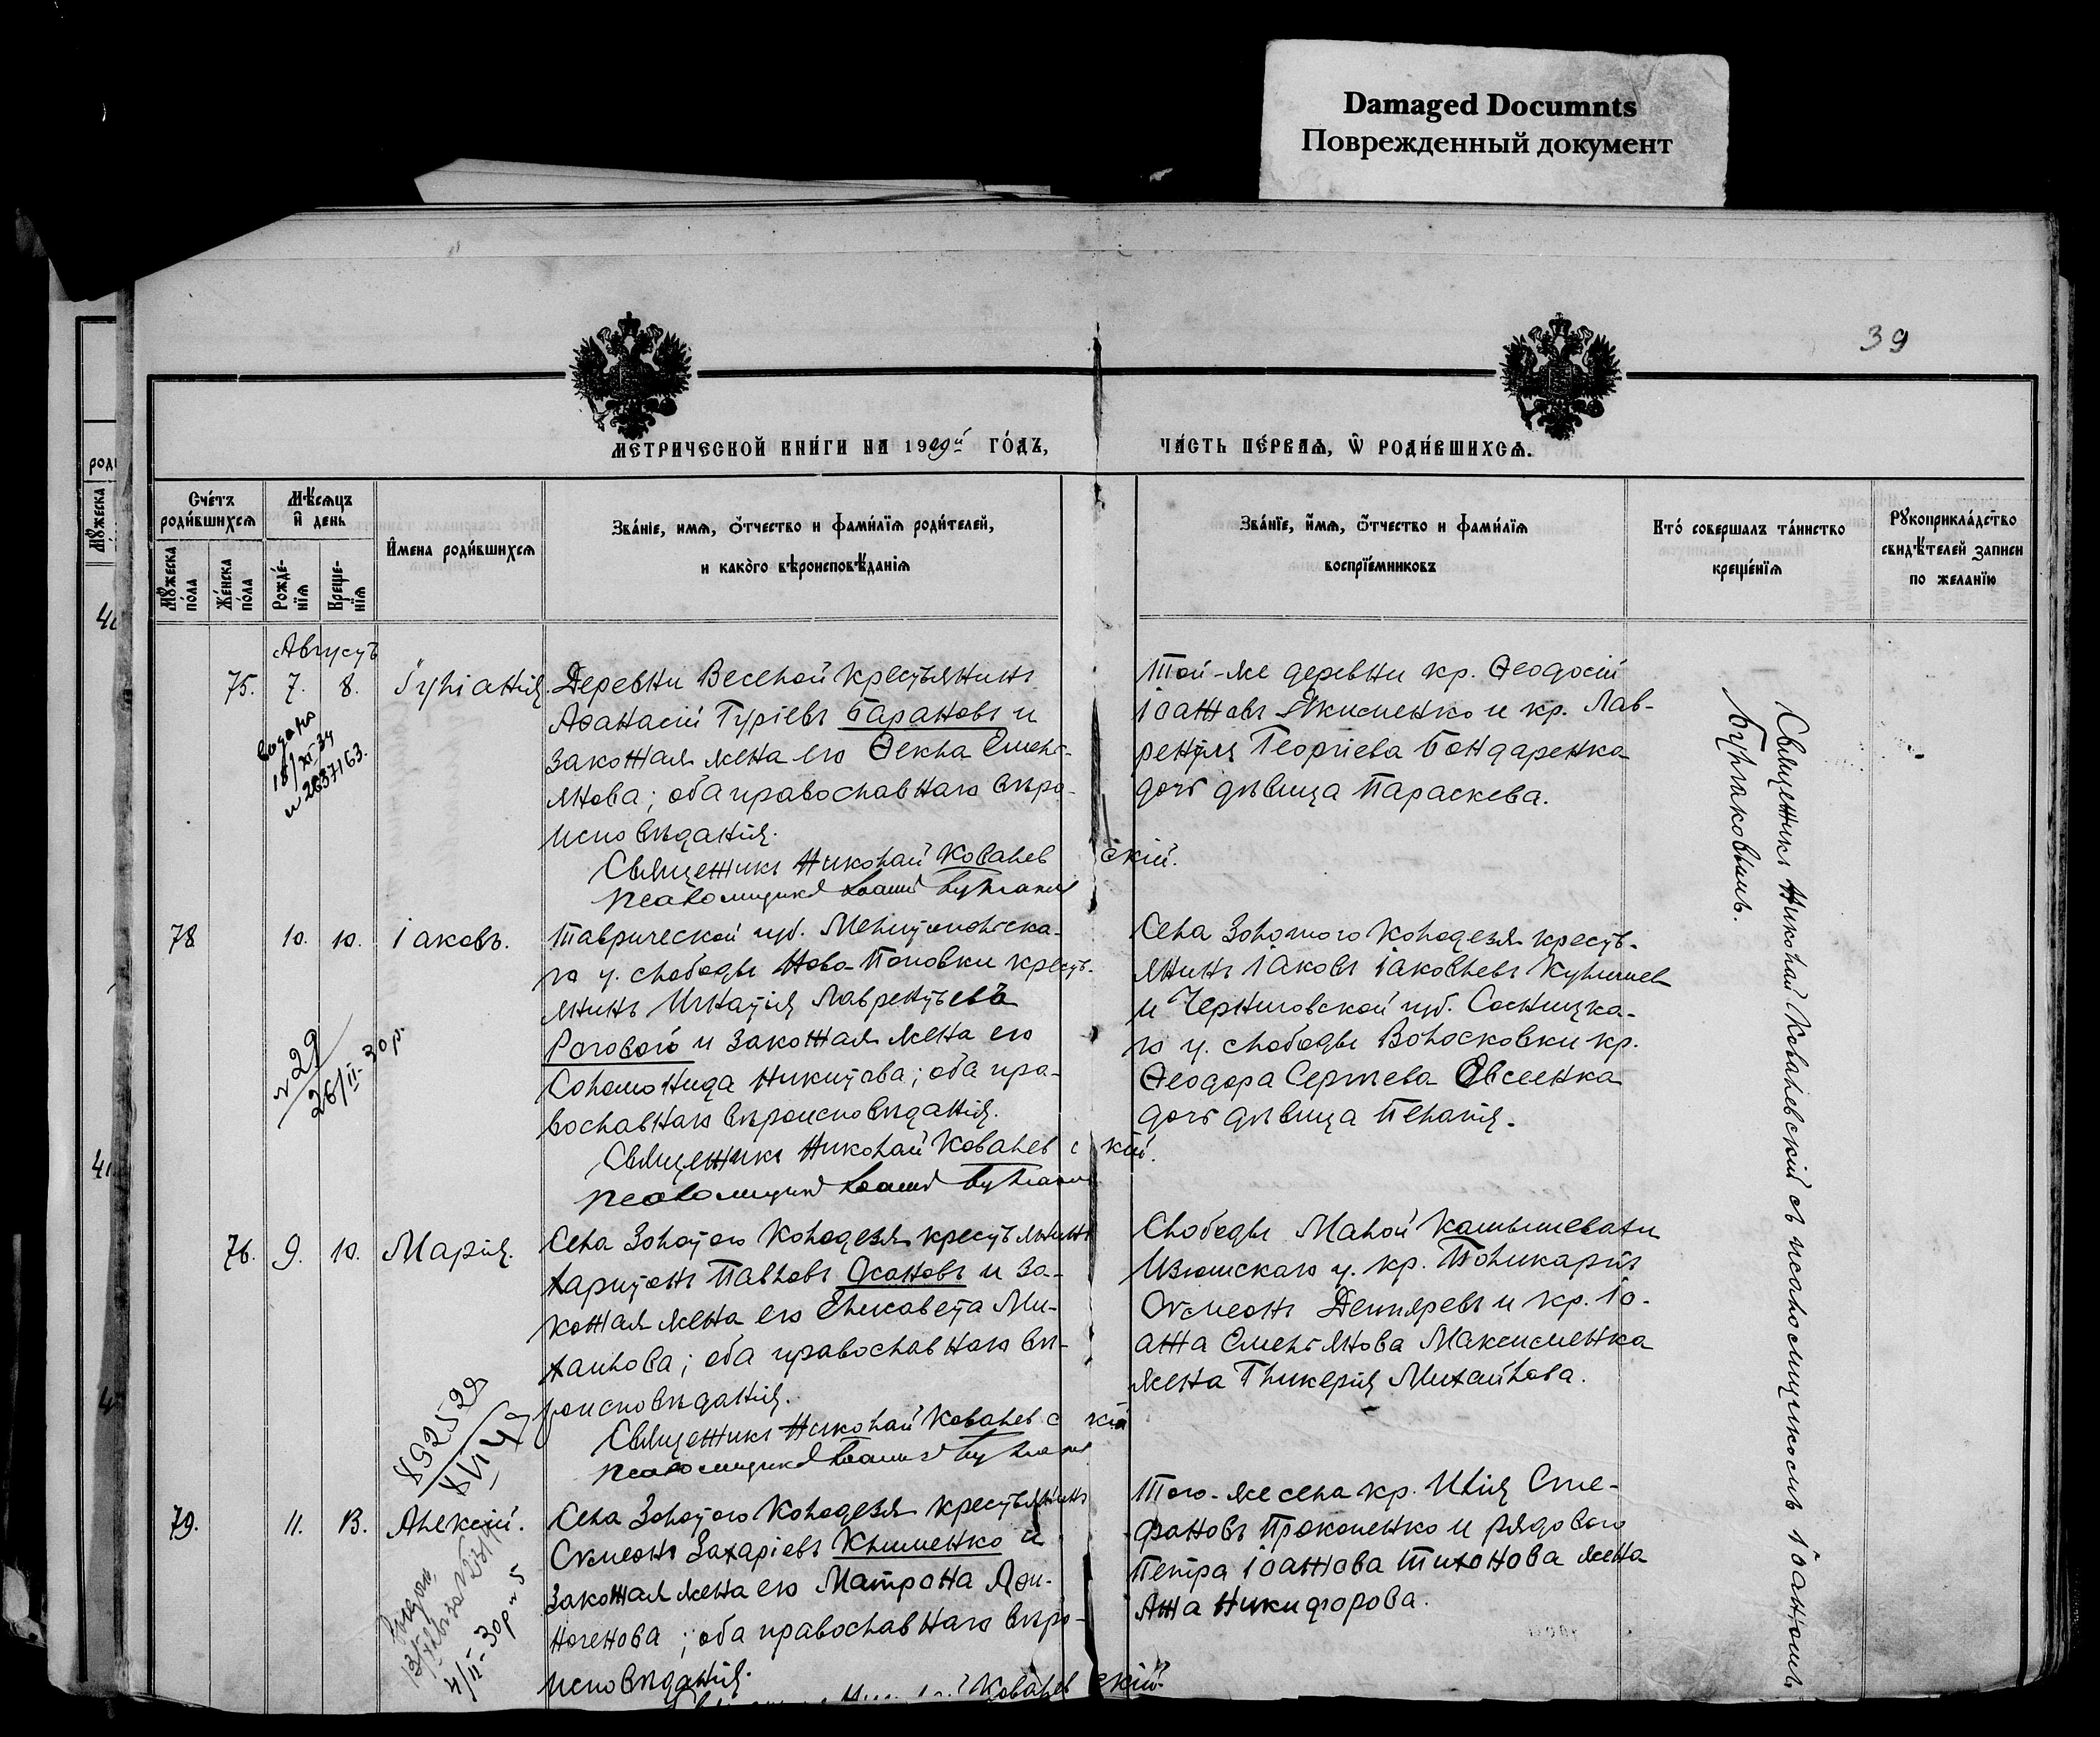 Damaged Documnts
Поврежденный документ
39
МЕТРИЧЕСКОЙ КНИГИ НА 1909й ГОДЪ,
ЧАСТЬ ПЕРВАЯ, Ѡ РОДИВШИХСЯ.
Счетъ родившихся
Мужеска пола
Женска пола
Мѣсяцъ и день
Рожденія
Крещенія
Имена родившихся
Званіе, имя, отчество и фамилія родителей,
и какого вѣроисповѣданія
Званіе, имя, отчество и фамилія
воспріемниковъ
Кто совершалъ таинство
крещенія
Рукоприкладство
свидѣтелей записи
по желанію
Августъ
75. 7. 8. Іуліанія.
Деревни Веселой крестьянинъ
Аѳанасій Гуріевъ Барановъ и
законная жена его Ѳекла Емель-
янова; оба православнаго вѣро-
исповѣданія.
Священникъ Николай Ковалевскій.
Псаломщикъ Іоаннъ
Той-же деревни кр. Ѳеодосій
Іоанновъ Якименко и кр. Лав-
рентія Георгіева Бондаренка
дочь дѣвица Параскева.
18/XI 34
78 10. 10. Іаковъ.
Таврической губ. Мелитопольска-
го у. слободы Ново-Поповки кресть-
янинъ Игнатія Лаврентьевъ
Рогового и законная жена его
Соломонида Никитова; оба пра-
вославнаго вѣроисповѣданія.
Священникъ Николай Ковалевскій.
Псаломщикъ Іоаннъ
Села Золотого Колодезя кресть-
янинъ Іаковъ Іаковлевъ
и Черниговской губ. Сосницка-
го у. слободы Волосковки кр.
Ѳеодора Сергіева Овсеенка
дочь дѣвица Пелагія.
№ 29
26/II-30 р.
76. 9. 10. Марія.
Села Золотого Колодезя крестьянинъ
Харитонъ Павловъ Осаповъ и за-
конная жена его Елисавета Ми-
хаилова; оба православнаго вѣ-
роисповѣданія.
Священникъ Николай Ковалевскій
Псаломщикъ Іоаннъ
Слободы Малой Камышевахи
Изюмскаго у. кр. Поликарпъ
Сѵмеонъ Дегтяревъ и кр. Іо-
анна Емельянова Максименка
жена Гликерія Михайлова.
892529
79. 11. 13. Алексій.
Села Золотого Колодезя крестьянинъ
Сѵмеонъ Захаріевъ Клименко и
законная жена его Матрона Лон-
гогенова; оба православнаго вѣро-
исповѣданія.
Ковалевскій
Того-же села кр. Илія Сте-
фановъ Прокопенко и рядового
Петра Іоаннова Тихонова жена
Анна Никифорова.
4/II-30р № 5
Священникъ Николай Ковалевскій съ псаломщикомъ Іоанномъ